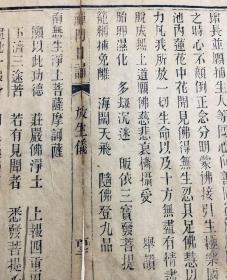 長並願捕生人等同心
之時心不顛倒正念分明蒙佛接引生極樂國
池內蓮花中花開見佛得無生忍具足佛慧以
力凡我所放一切生命以及十方無盡有情
脫成無上道願佛慈悲哀憐攝受 舉讚
胎卵濕化 多劫沉迷 皈依三寶發菩提
籠網捕免離 海闊天飛 隨佛登九品
禪門日誦 放生儀
南無生淨土菩薩摩訶薩
願以此功德 莊嚴佛淨土 上報四重恩
下濟三途苦 若有見聞者 悉發菩提